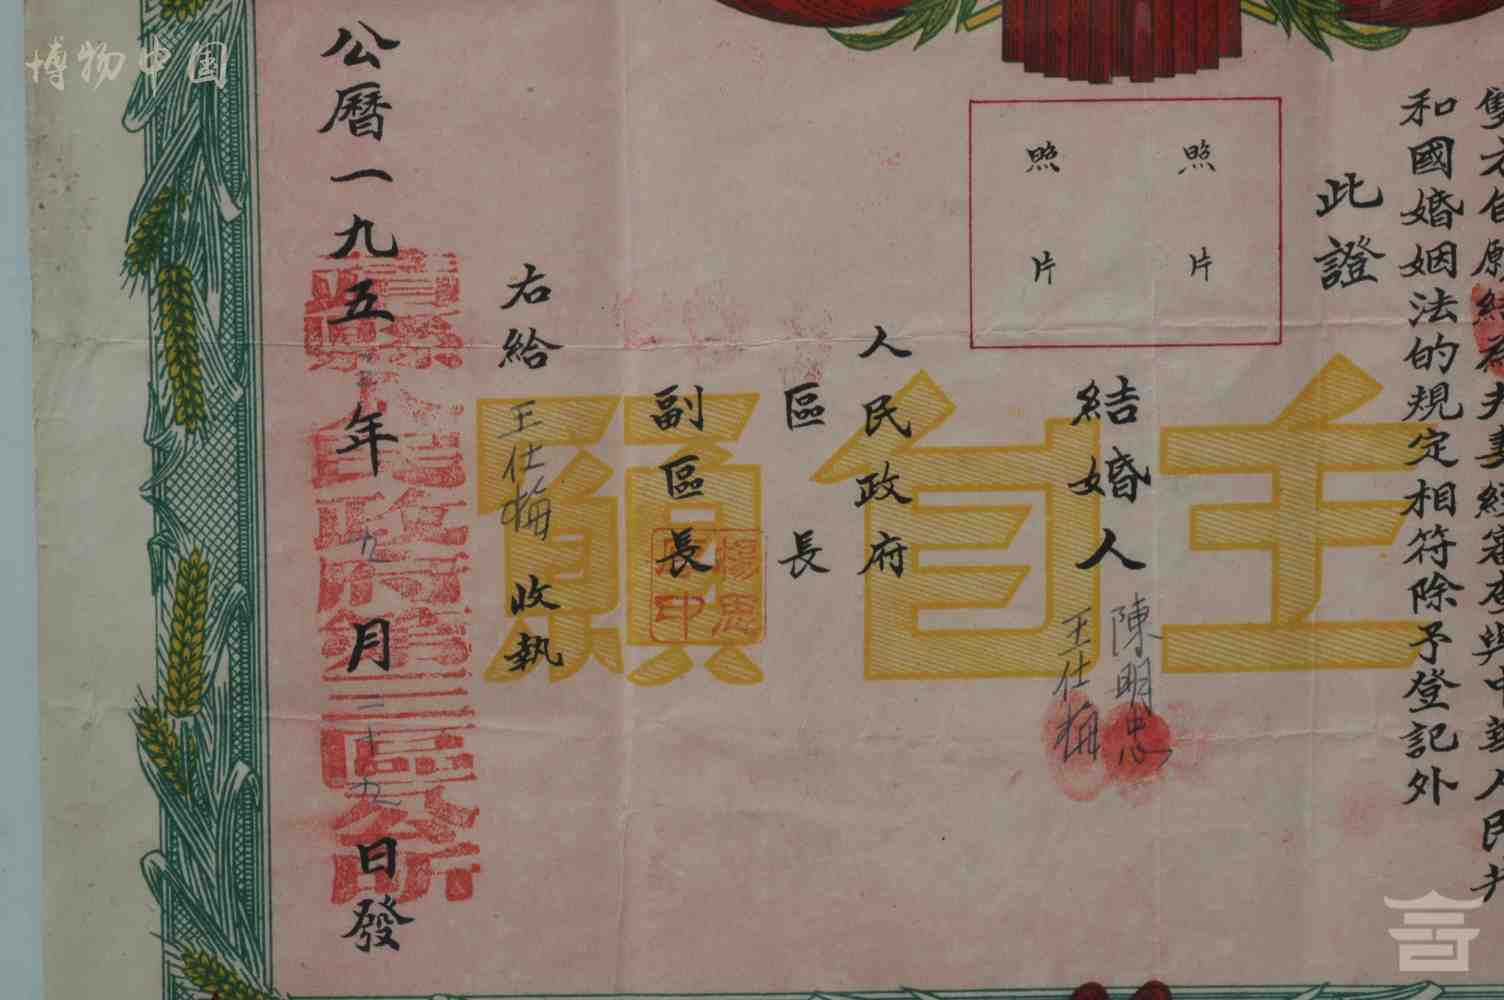 雙方自願結爲夫妻經審查與中華人民共
和國婚姻法的規定相符除予登記外
此證
照片
照片
結婚人
陳明忠
王仕梅
人民政府
區長
副區長
楊思
印
右給王仕梅收執
公曆一九五年九月二十九日發
縣人民政府第三區公所
主自願
博物中国